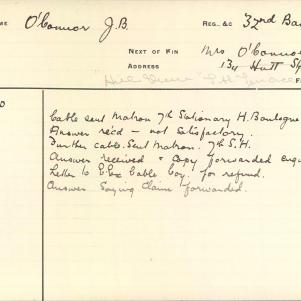 ME O'Connor J.B. REG. &C 32nd Ba
NEXT OF KIN Mrs O'Connor
ADDRESS 134 Hutt
Terrace
F
0
Cable sent Matron 7th Stationary H. Boulogne
Answer rec'd – not satisfactory.
Further cable sent Matron. 7th S.H.
Answer received & copy forwarded enq
Letter to Cable Coy. for refund.
Answer Saying Claim forwarded.